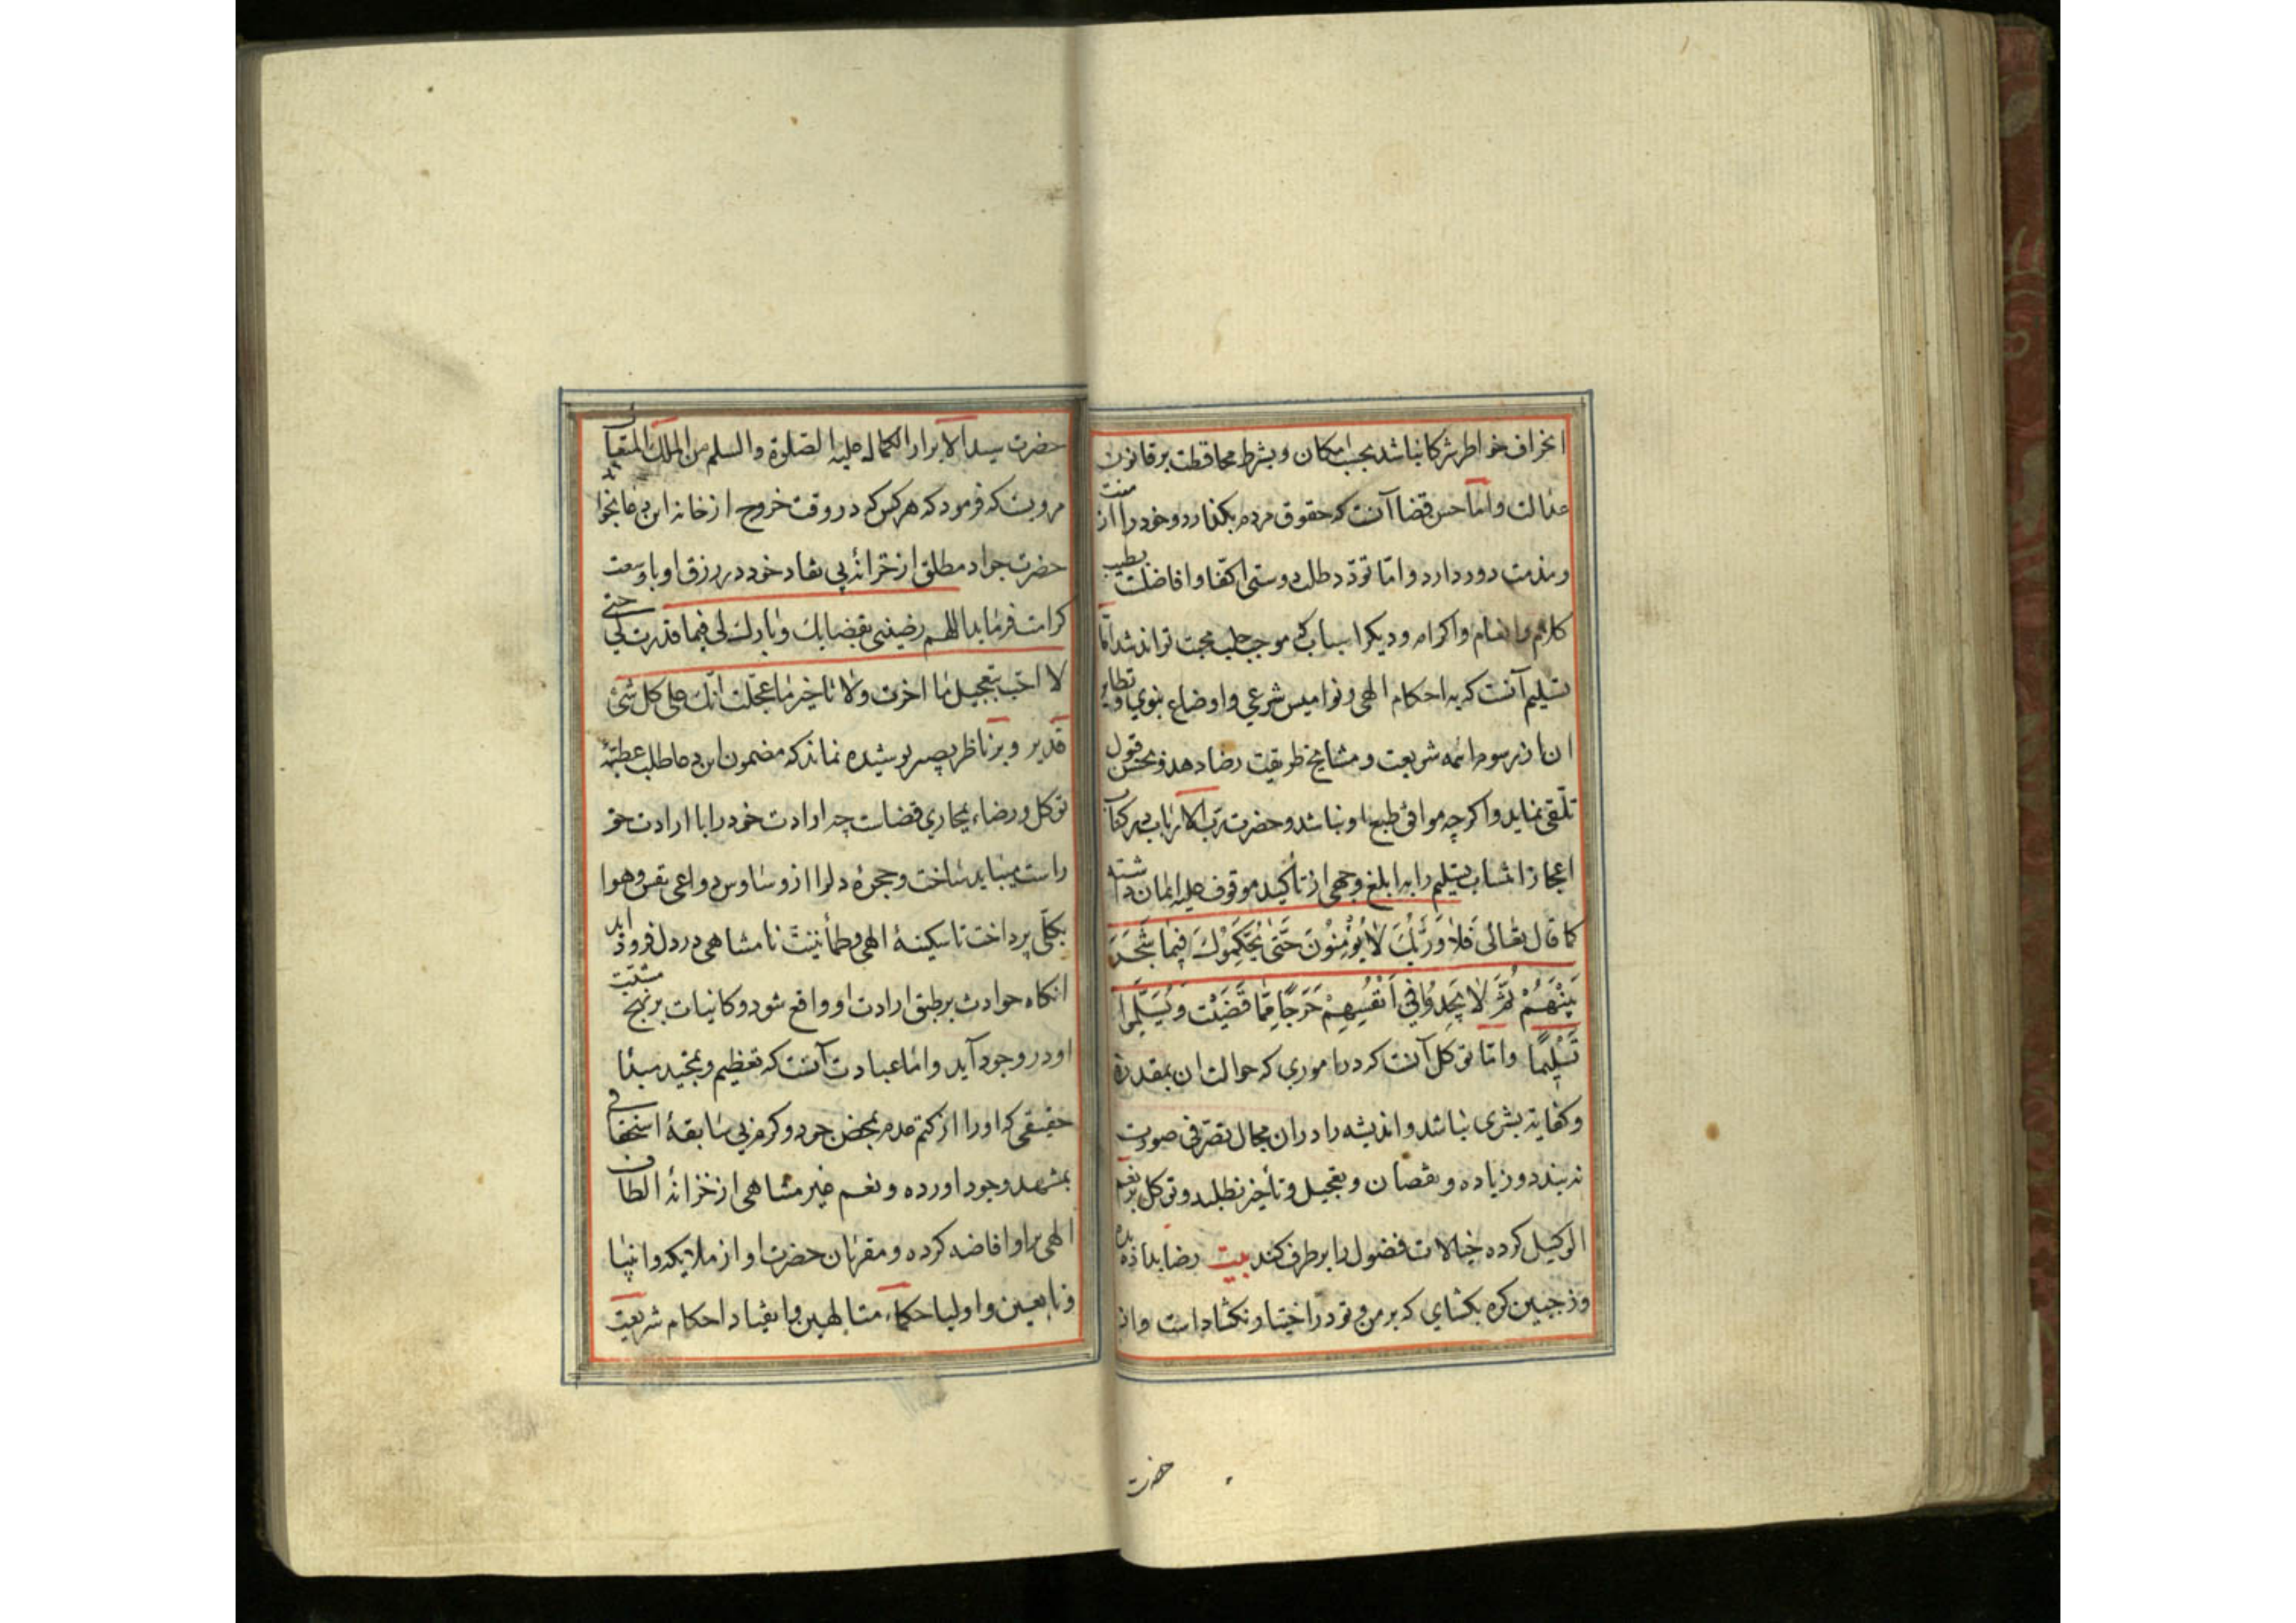 انحراف خواطر شركا نباشد بحسب امكان و بشرط محافظت بر قانون
عدالت و اما حسن قضا آنست كه حقوق مردم بكذارد و خود را از منت
و مذمت دور دارد و امّا تودّد طلب دوستى اكفا و افاضلست بطيب
كلام و انعام و اكرام و ديكر اسباب كه موجب جلب محبت تواند شد امّا
تسليم آنست كه به احكام الهى و نواميس شرعي و اوضاع نبوي و نظاير
ان از رسوم ائمه شريعت و مشايخ طريقت رضا دهد و بحسن قبول
تلّقى نمايد و اكرچه موافق طبع او نباشد و حضرت ربّ الارباب در كتاب
اعجاز انتساب تسليم را به ابلغ وجهى از تأكيد موقوف عليه ايمان داشته
كما قال تعالى فَلا وَرَبِّكَ لا يُؤْمِنُونَ حَتّى يُحَكِّمُوْكَ فِيما شَجَرَ
بَيْنَهُمْ ثُمَّ لا يَجِدُوا في اَنْفُسِهِمْ حَرَجًا مِمّا قَضَيْتَ وَيُسَلِّمُوا
تَسْلِيمًا و امّا توكل آنست كه در اموري كه حوالت ان بمقدرة
و كفايت بشرى نباشد و انديشه را دران مجال تصرّفى صورت
نه بندد و زياده و نقصان و تعجيل و تأخير نطلبد و توكل بر نعم
الوكيل كرده خيالات فضول را برطرف كند بيت رضا بداده بده
وز جبين كره بكشاى كه بر من و تو در اختيار نكشادست و از
حضرت
حضرت سيد الابرار الكمال عليه الصلوة و السلم من الملك المتعال
مرويست كه فرمود كه هر كس كه در وقت خروج از خانه اين دعا بخواند
حضرت جواد مطلق از خزانه بى نفاد خود در رزق او با وسعت
كرامت فرمايد اللهم رضينى بقضايك و بارك لى فيما قدرت لي حتى
لا احب تعجيل ما اخرت و لا تاخير ما عجّلت انّك على كل شئ
قدير و بر ناظر بصير پوشيده نماند كه مضمون اين دعا طلب عطيّهٔ
توكل و رضاء بمجاري قضاست چه ارادت خود را با ارادت حق
راست ميبايد ساخت و حجرهٔ دل را از وساوس دواعى نفس و هوا
بكلّى پرداخت تا سكينهٔ الهى و طمأنينت نامتناهى در دل فرود آيد
انكاه حوادث بر طبق ارادت او واقع شود و كاينات بر نهج مشيّت
او در وجود آيد و امّا عبادت آنست كه تعظيم و تمجيد مبدأ
حقيقى كه او را از كتم عدم بمحض جود و كرم بى سابقهٔ استحقاقى
بمشهد وجود اورده و نعم غير متناهى از خزانهٔ الطاف
الهى بر او افاضه كرده و مقربان حضرت او از ملايكه و انبيا
و تابعين و اوليا حكماء متالهين و انقياد احكام شريعت